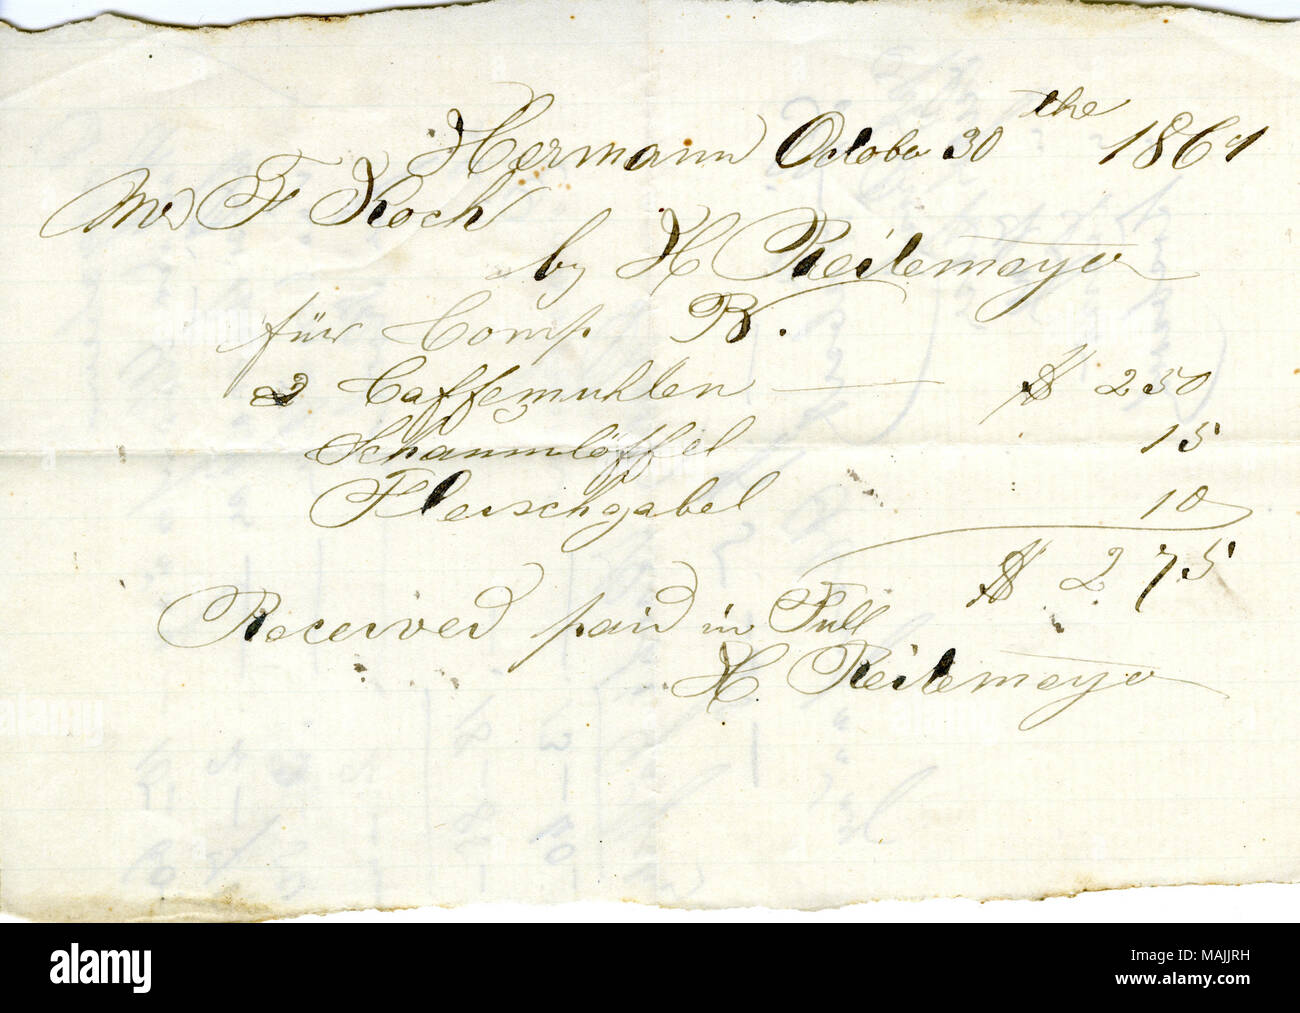 Hermann October 30 the 1861
Mr F Koch
by H Reitemeyer
für Comp B.
2 Caffemuhlen — $ 2 50
Schaumlöffel 15
Fleischgabel 10
$ 2 75
Received paid in Full
H. Reitemeyer
alamy
Image ID: MAJJRH
www.alamy.com